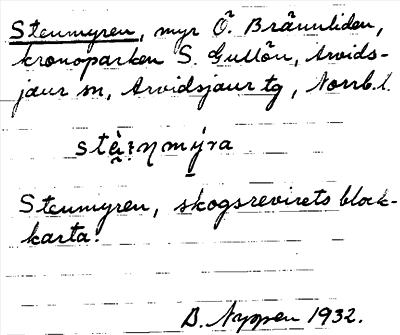 Stenmyren, myr Ö. Brännliden,
kronoparken S. Gullön, Arvids-
jaur sn, Arvidsjaur tg, Norrb.l.
stè̤i̤nmý̱ra
Stenmyren, skogsrevirets block-
karta.
B. Nyppen 1932.